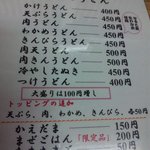 かけうどん 400円
天ぷらうどん 450円
肉うどん 450円
わかめうどん 450円
きんぴらうどん 450円
肉天うどん 500円
肉きんうどん 500円
冷やしたぬき 450円
つけうどん 400円
大盛りは100円増し
トッピングの追加
天ぷら、肉、わかめ、きんぴら、各50円
かえだま 150円
まぜごはん「限定品」 200円
50円